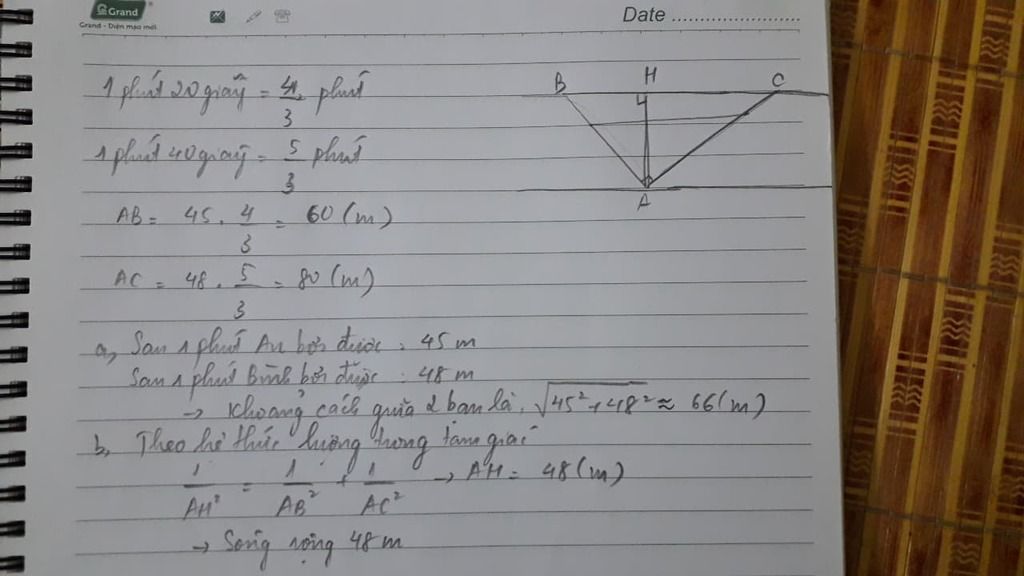 Grand
Grand - Diện mạo mới
Date
1 phút 20 giây = 4/3 phút
1 phút 40 giây = 5/3 phút
AB = 45 . 4/3 = 60 (m)
AC = 48 . 5/3 = 80 (m)
B H C
A
a, Sau 1 phút An bơi được : 45 m
Sau 1 phút Bình bơi được : 48 m
→ Khoảng cách giữa 2 bạn là, √45² + 48² ≈ 66 (m)
b, Theo hệ thức lượng trong tam giác
1/AH² = 1/AB² + 1/AC² → AH = 48 (m)
→ Sông rộng 48 m